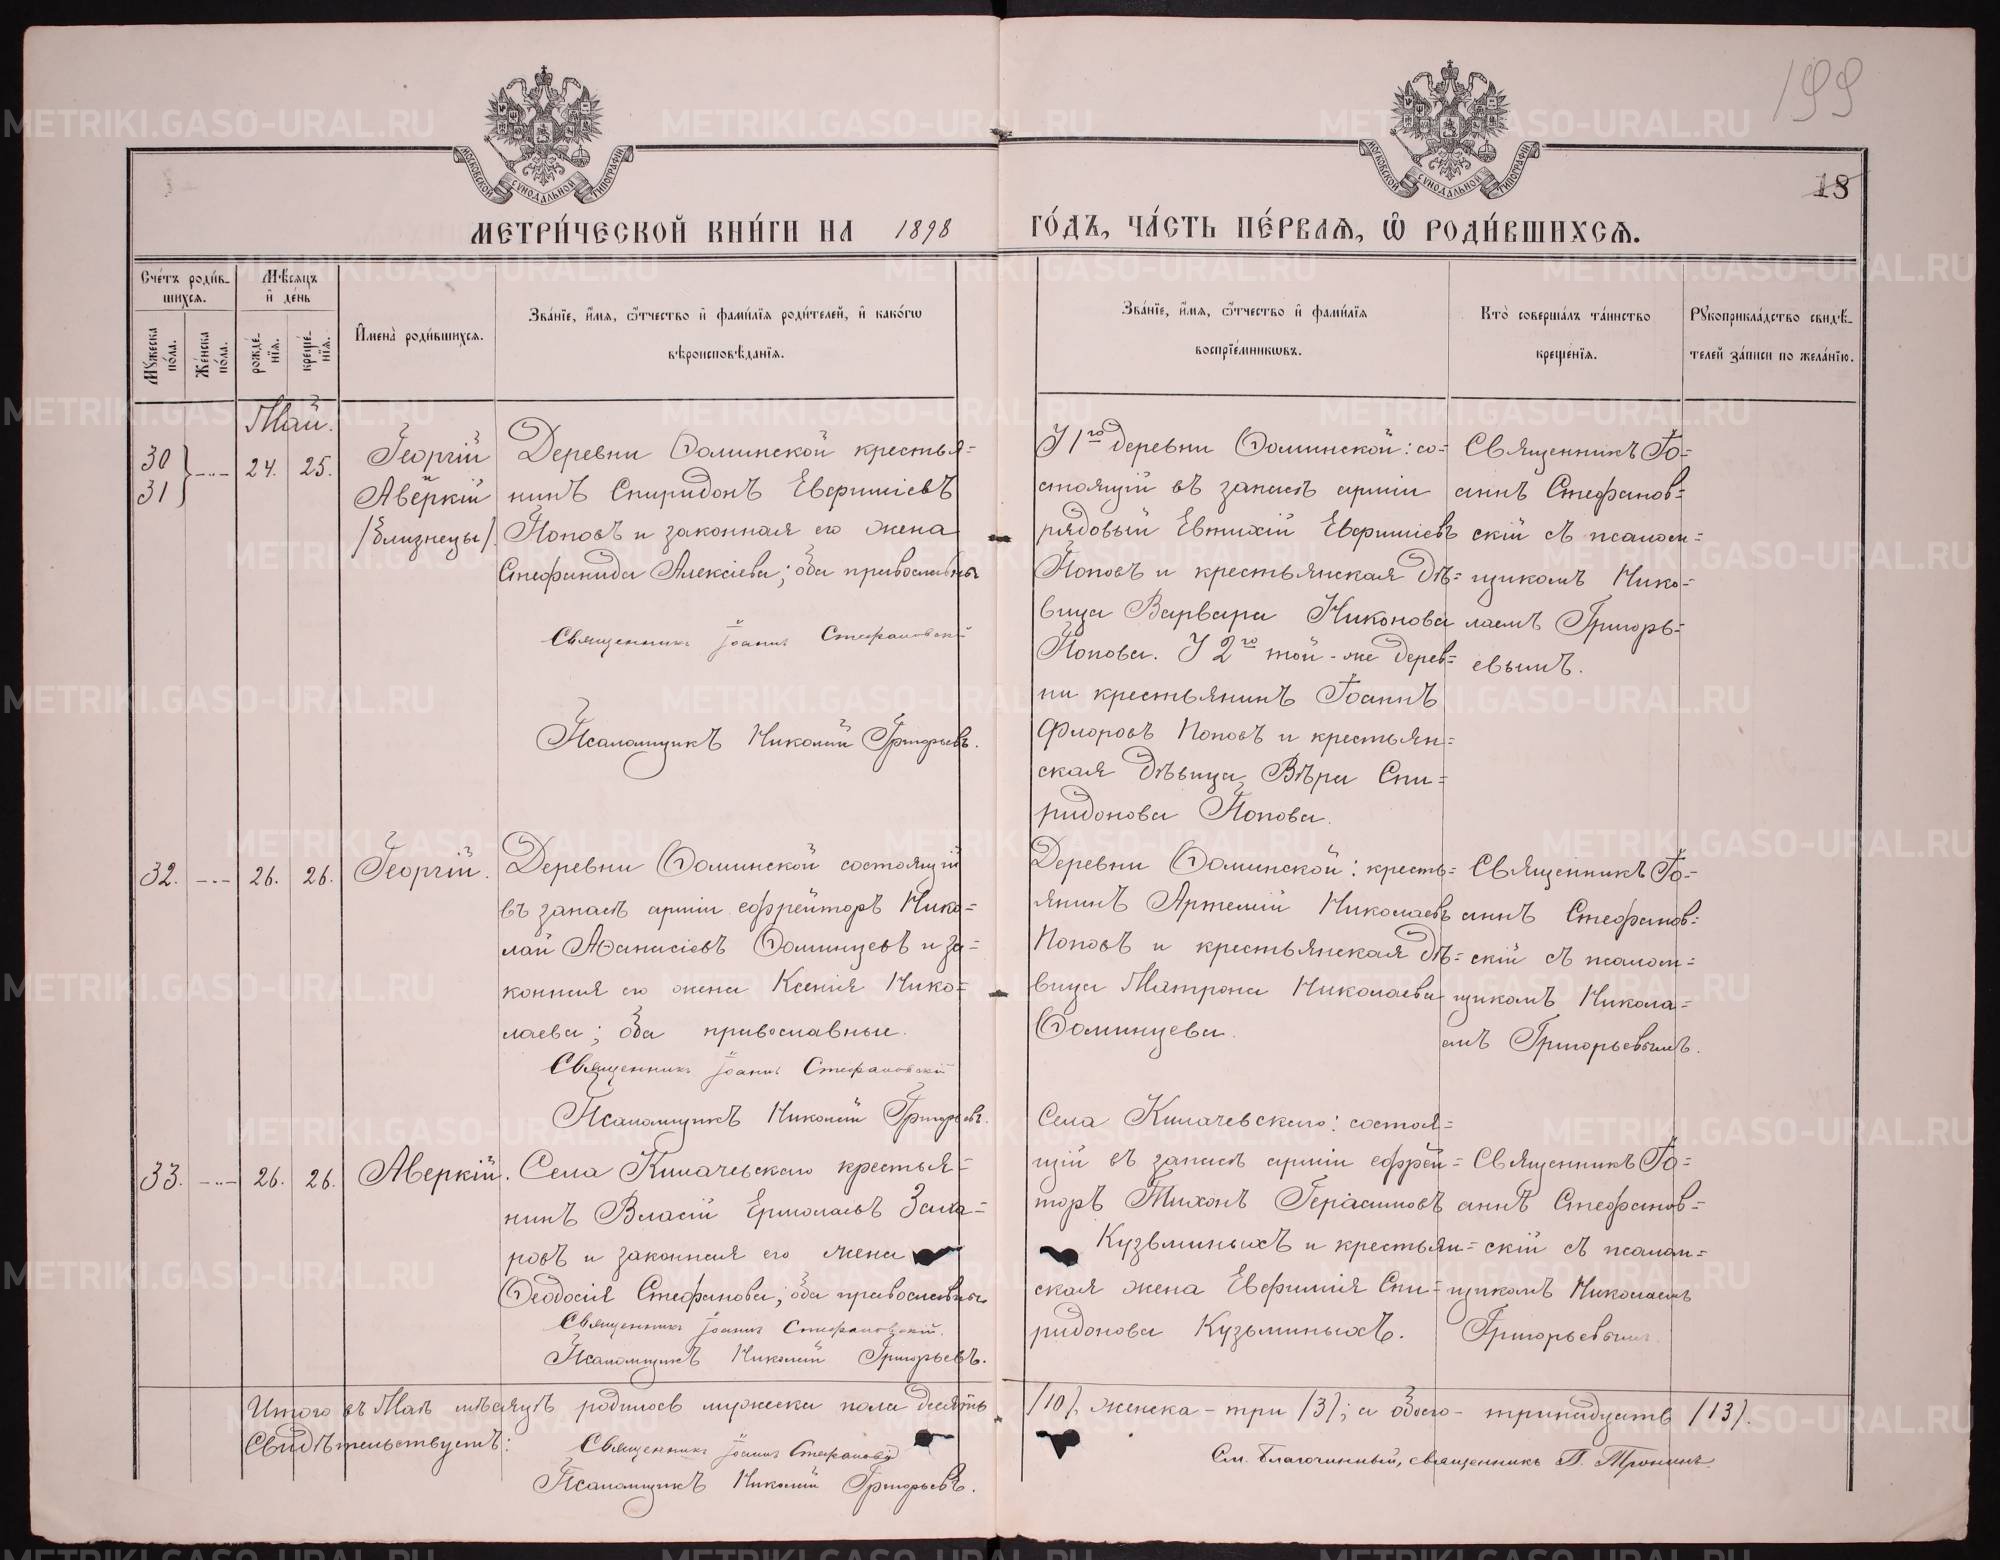 199
МОСКОВСКОЙ СУНОДАЛЬНОЙ ТИПОГРАФІИ
МОСКОВСКОЙ СУНОДАЛЬНОЙ ТИПОГРАФІИ
18
МЕТРИ́ЧЕСКОЙ КНИ́ГИ НА 1898 ГО́ДЪ, ЧА́СТЬ ПЕ́РВАѦ, Ѡ҆ РОДИ́ВШИХСѦ.
Сче́тъ роди́в-
шихсѧ.
Мꙋ́жеска по́ла.
Же́нска по́ла.
Мѣ́сѧцъ
и҆ де́нь
рожде́-
нїѧ.
креще́-
нїѧ.
И҆мена̀ роди́вшихсѧ.
Зва́нїе, и҆́мѧ, ѻ҆́тчество и҆ фами́лїѧ роди́телей, и҆ како́гѡ
вѣроисповѣ́данїѧ.
Зва́нїе, и҆́мѧ, ѻ҆́тчество и҆ фами́лїѧ
воспрїе́мникѡвъ.
Кто̀ соверша́лъ та́инство
креще́нїѧ.
Рꙋкоприкла́дство свидѣ́-
телей за́писи по жела́нїю.
Май.
30
31
24.
25.
Георгій
Аверкій
/близнецы/.
Деревни Ѳоминской крестья=
нинъ Спиридонъ Евѳиміевъ
Поповъ и законная его жена
Стефанида Алексіева; оба православны
Священникъ Іоаннъ Стефановскій
Псаломщикъ Николай Григорьевъ.
У 1го деревни Ѳоминской: со=
стоящій въ запасѣ арміи
рядовый Евтихій Евѳиміевъ
Поповъ и крестьянская дѣ=
вица Варвара Никонова
Попова. У 2го той-же дерев=
ни крестьянинъ Іоаннъ
Флоровъ Поповъ и крестьян=
ская дѣвица Вѣра Спи=
ридонова Попова.
Священникъ Іо=
аннъ Стефанов=
скій съ псалом=
щикомъ Нико=
лаемъ Григорь=
евымъ.
32.
26.
26.
Георгій.
Деревни Ѳоминской состоящій
въ запасѣ арміи ефрейторъ Нико=
лай Аѳанасіевъ Ѳоминцевъ и за=
конная его жена Ксенія Нико=
лаева; оба православные.
Священникъ Іоаннъ Стефановскій
Псаломщикъ Николай Григорьевъ.
Деревни Ѳоминской: кресть=
янинъ Артемій Николаевъ
Поповъ и крестьянская дѣ=
вица Матрона Николаева
Ѳоминцева.
Священникъ Іо=
аннъ Стефанов=
скій съ псалом=
щикомъ Никола=
емъ Григорьевымъ.
33.
26.
26.
Аверкій.
Села Килачевскаго крестья=
нинъ Власій Ермолаевъ Заха=
ровъ и законная его жена
Ѳеодосія Стефанова; оба православны
Священникъ Іоаннъ Стефановскій.
Псаломщикъ Николай Григорьевъ.
Села Килачевскаго: состоя=
щій въ запасѣ арміи ефрей=
торъ Тихонъ Герасимовъ
Кузьминыхъ и крестьян=
ская жена Евѳимія Спи=
ридонова Кузьминыхъ.
Священникъ Іо=
аннъ Стефанов=
скій съ псалом=
щикомъ Николаемъ
Григорьевымъ
Итого въ Маѣ мѣсяцѣ родилось мужеска пола десять /10/, женска - три /3/; а обоего - тринадцать /13/.
Свидѣтельствуетъ:
Священникъ Іоаннъ Стефановскій
Псаломщикъ Николай Григорьевъ.
См. Благочинный, священникъ П. Тронинъ
METRIKI.GASO-URAL.RU